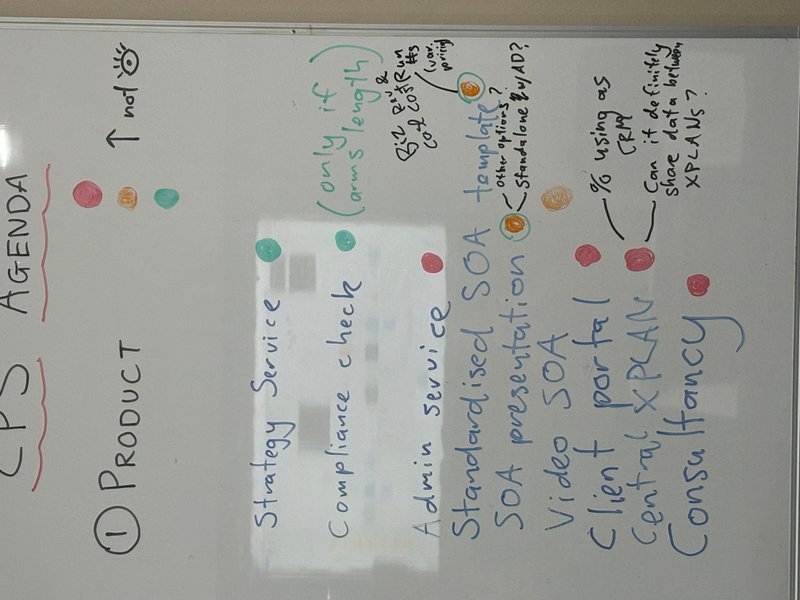 CPS AGENDA
① PRODUCT
↑ not
Strategy Service
Compliance check (only if arms length)
Admin service
Standardised SOA template
Biz Rev &
Cost Run
(var. pricing)
SOA presentation
Other options?
Standalone w/AD?
Video SOA
Client portal
Central XPLAN
% using as
CRM
Can it definitely
share data between
XPLANs?
Consultancy